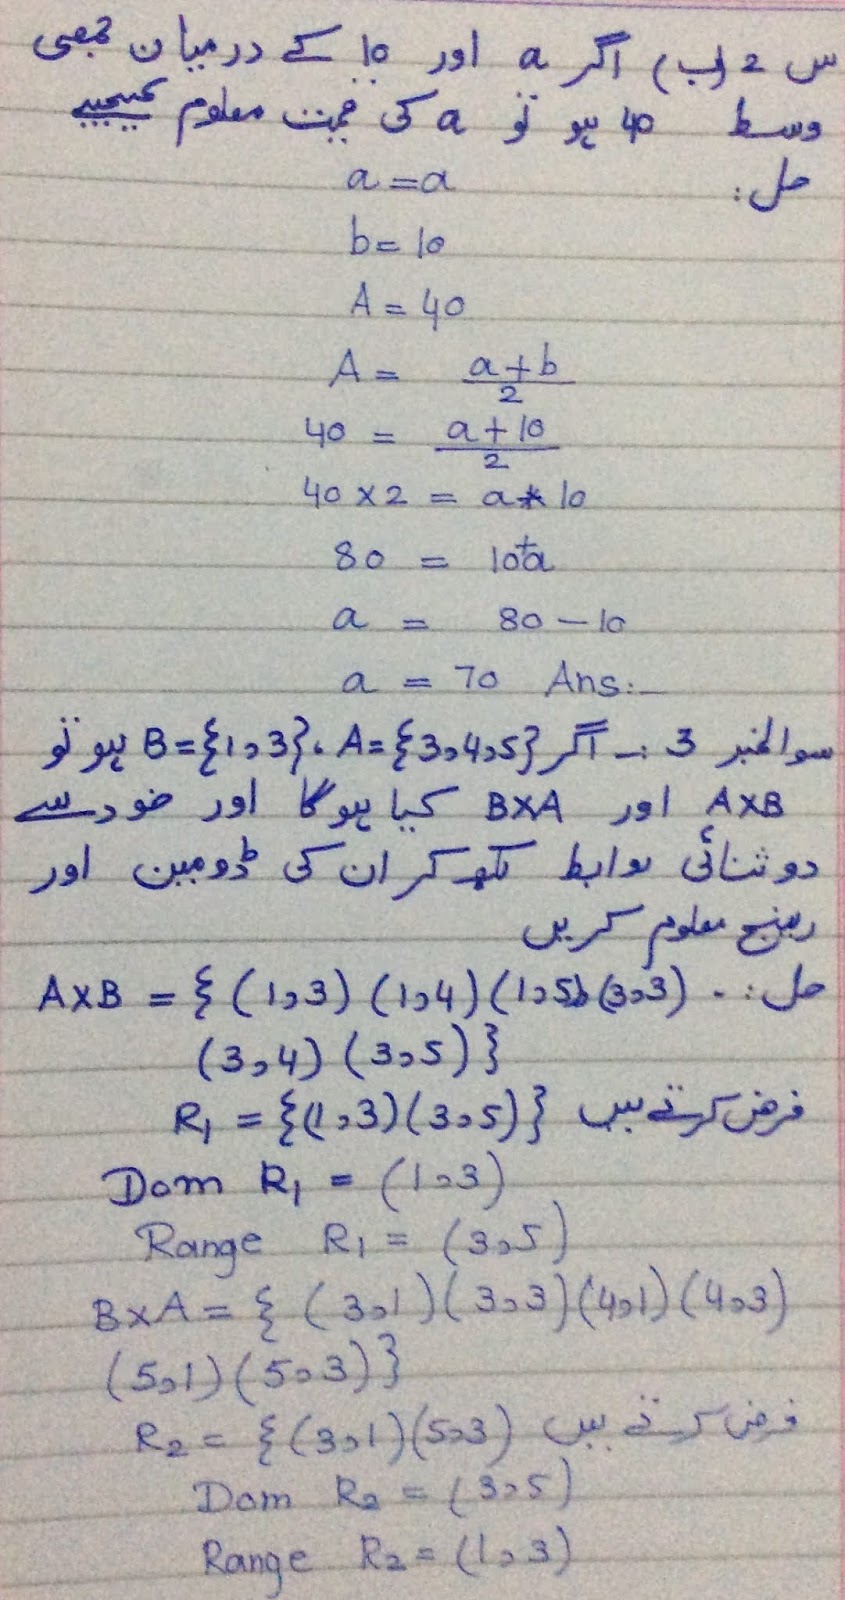 س 2 (ب) اگر a اور 10 کے درمیان جمعی
وسط 40 ہو تو a کی قیمت معلوم کیجیے
حل:
a = a
b = 10
A = 40
A = a + b / 2
40 = a + 10 / 2
40 × 2 = a + 10
80 = 10 + a
a = 80 - 10
a = 70 Ans:-
سوالنمبر 3 :- اگر A = {3,4,5} ، B = {1,3} ہو تو
A×B اور B×A کیا ہوگا اور خود سے
دو ثنائی روابط لکھ کر ان کی ڈومین اور
رینج معلوم کریں
حل:- A×B = { (1,3) (1,4) (1,5) (3,3)
(3,4) (3,5) }
فرض کرتے ہیں R1 = {(1,3)(3,5)}
Dom R1 = (1,3)
Range R1 = (3,5)
B×A = { (3,1) (3,3) (4,1) (4,3)
(5,1) (5,3) }
فرض کرتے ہیں R2 = {(3,1)(5,3)
Dom R2 = (3,5)
Range R2 = (1,3)